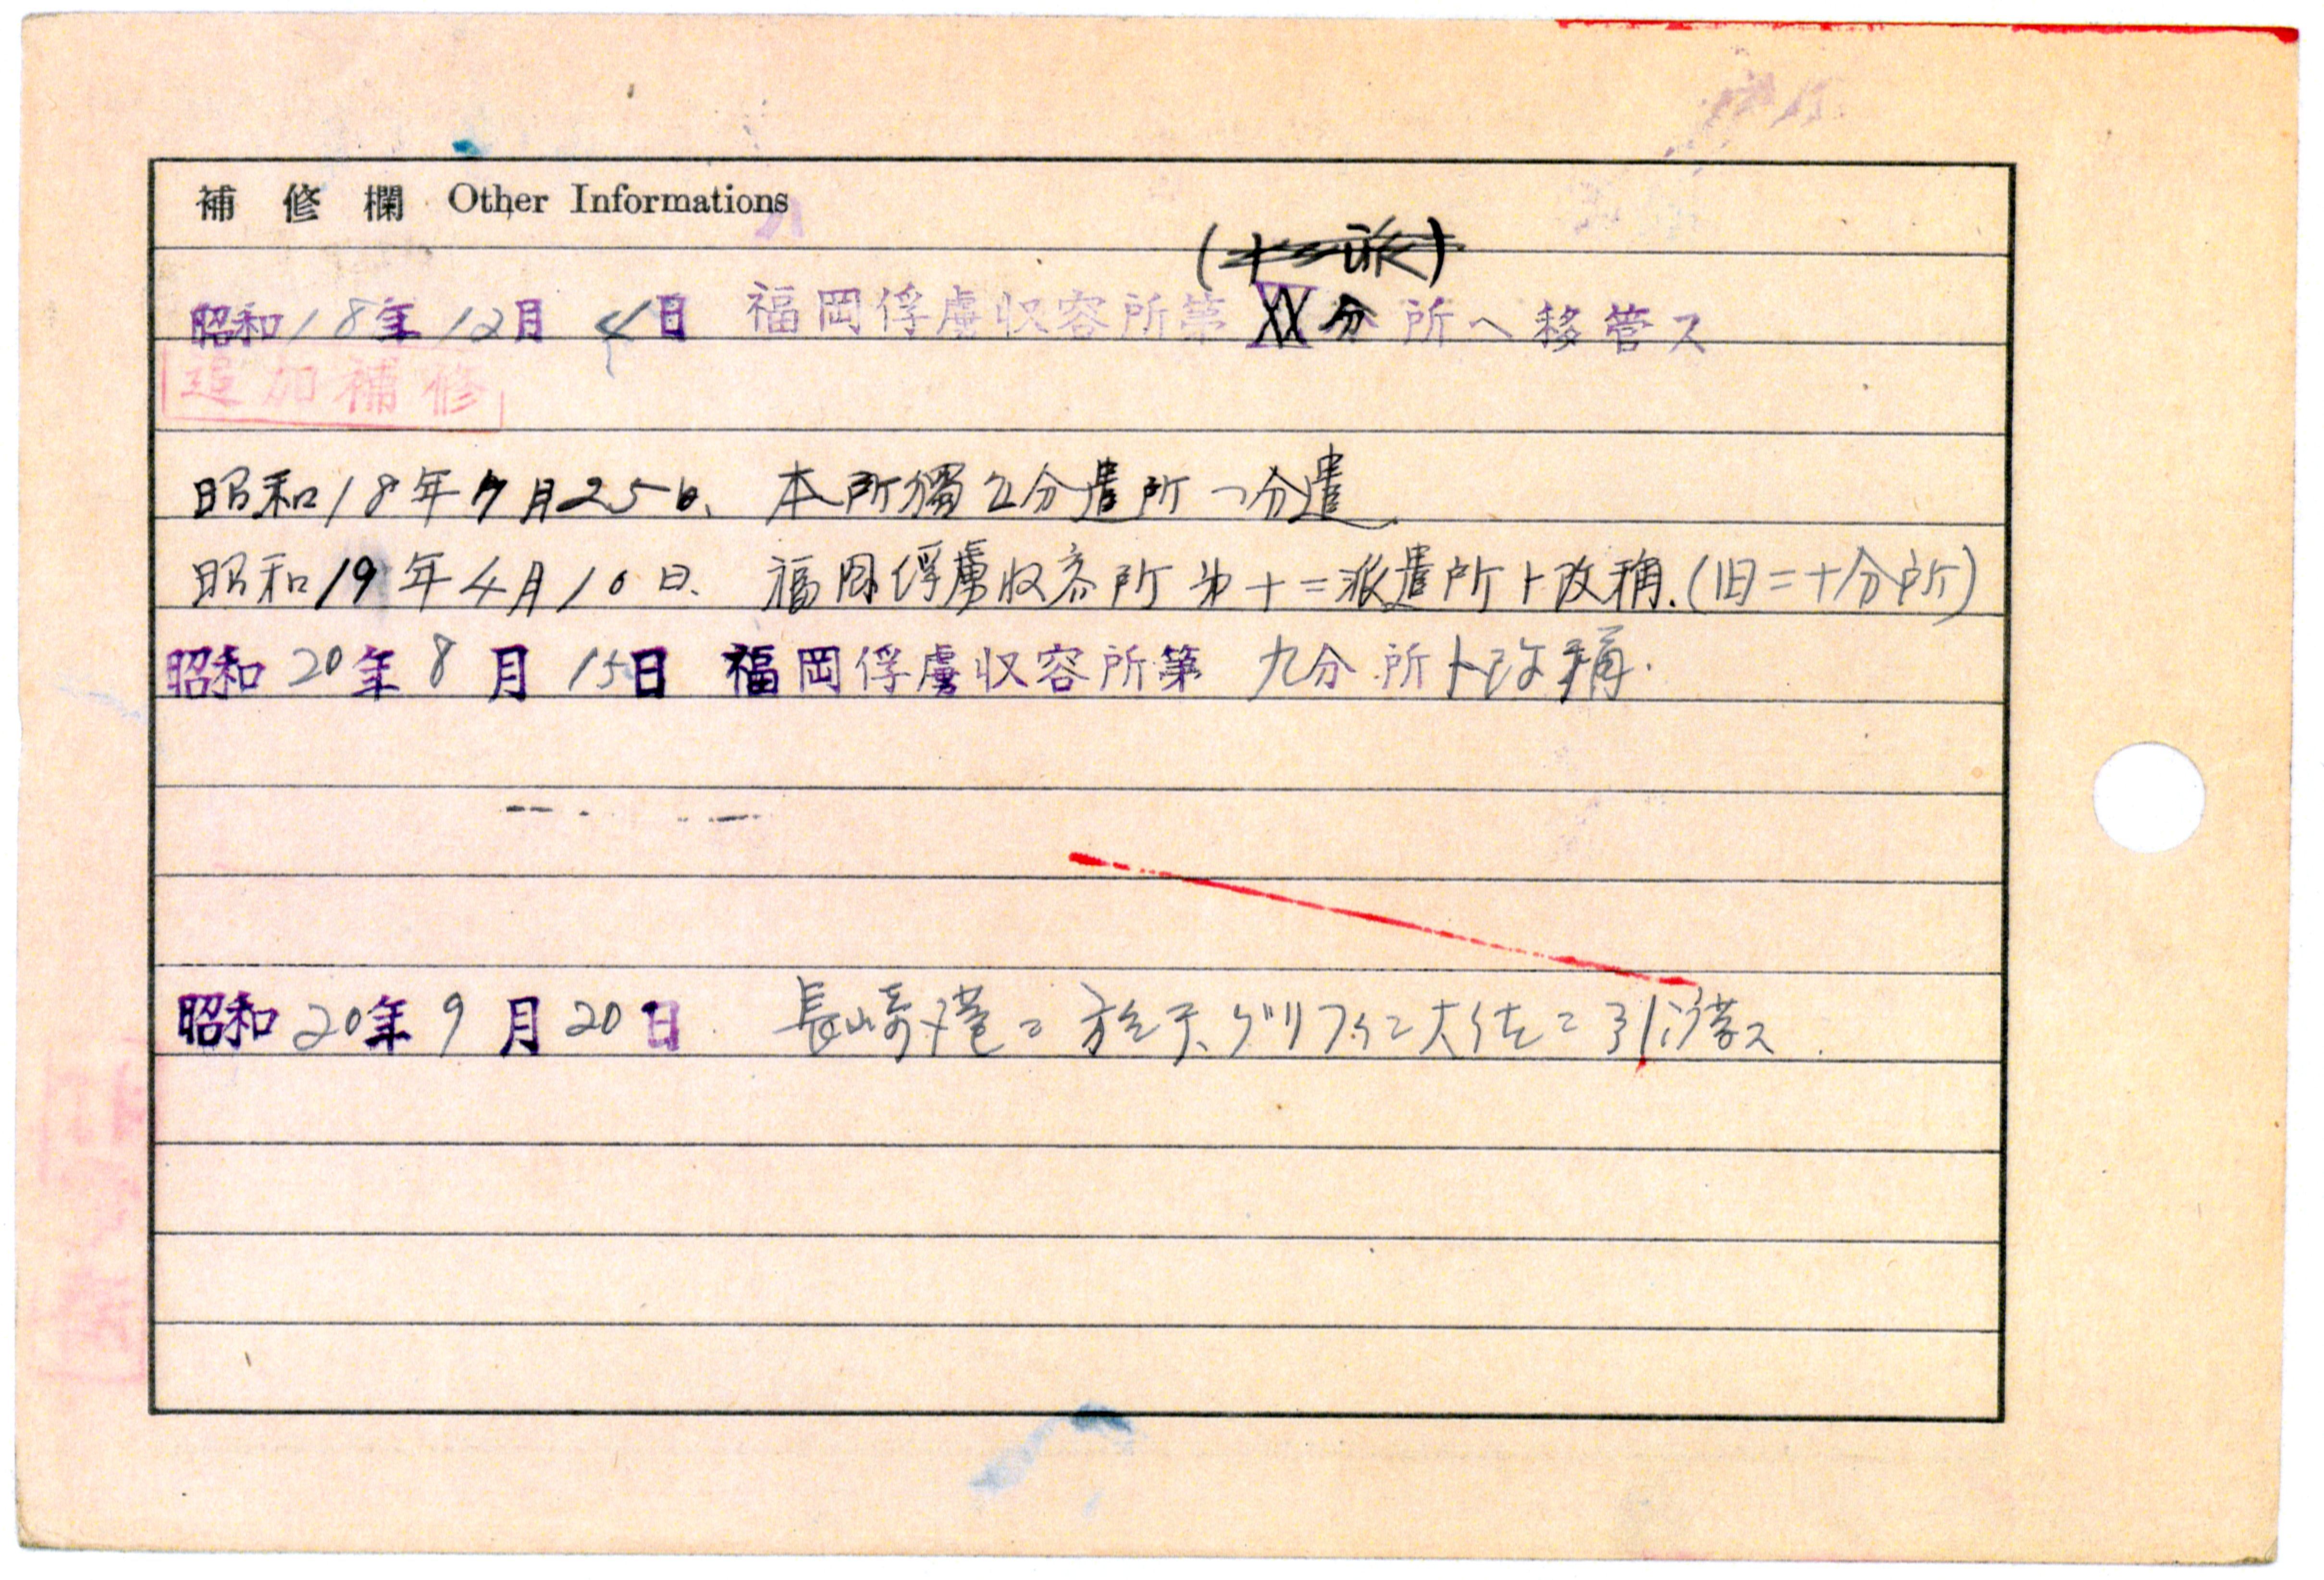 補修欄 Other Informations
昭和18年12月4日 福岡俘虜収容所第XX分所へ移管ス
追加補修
昭和18年7月25日、本所獨立分遣所へ分遣
昭和19年4月10日、福岡俘虜収容所第十二派遣所ト改稱.(旧二十分所)
昭和20年8月15日 福岡俘虜収容所第九分所ト改稱.
昭和20年9月20日 長崎港ニ於テ、グリフィン大佐ニ引渡ス.